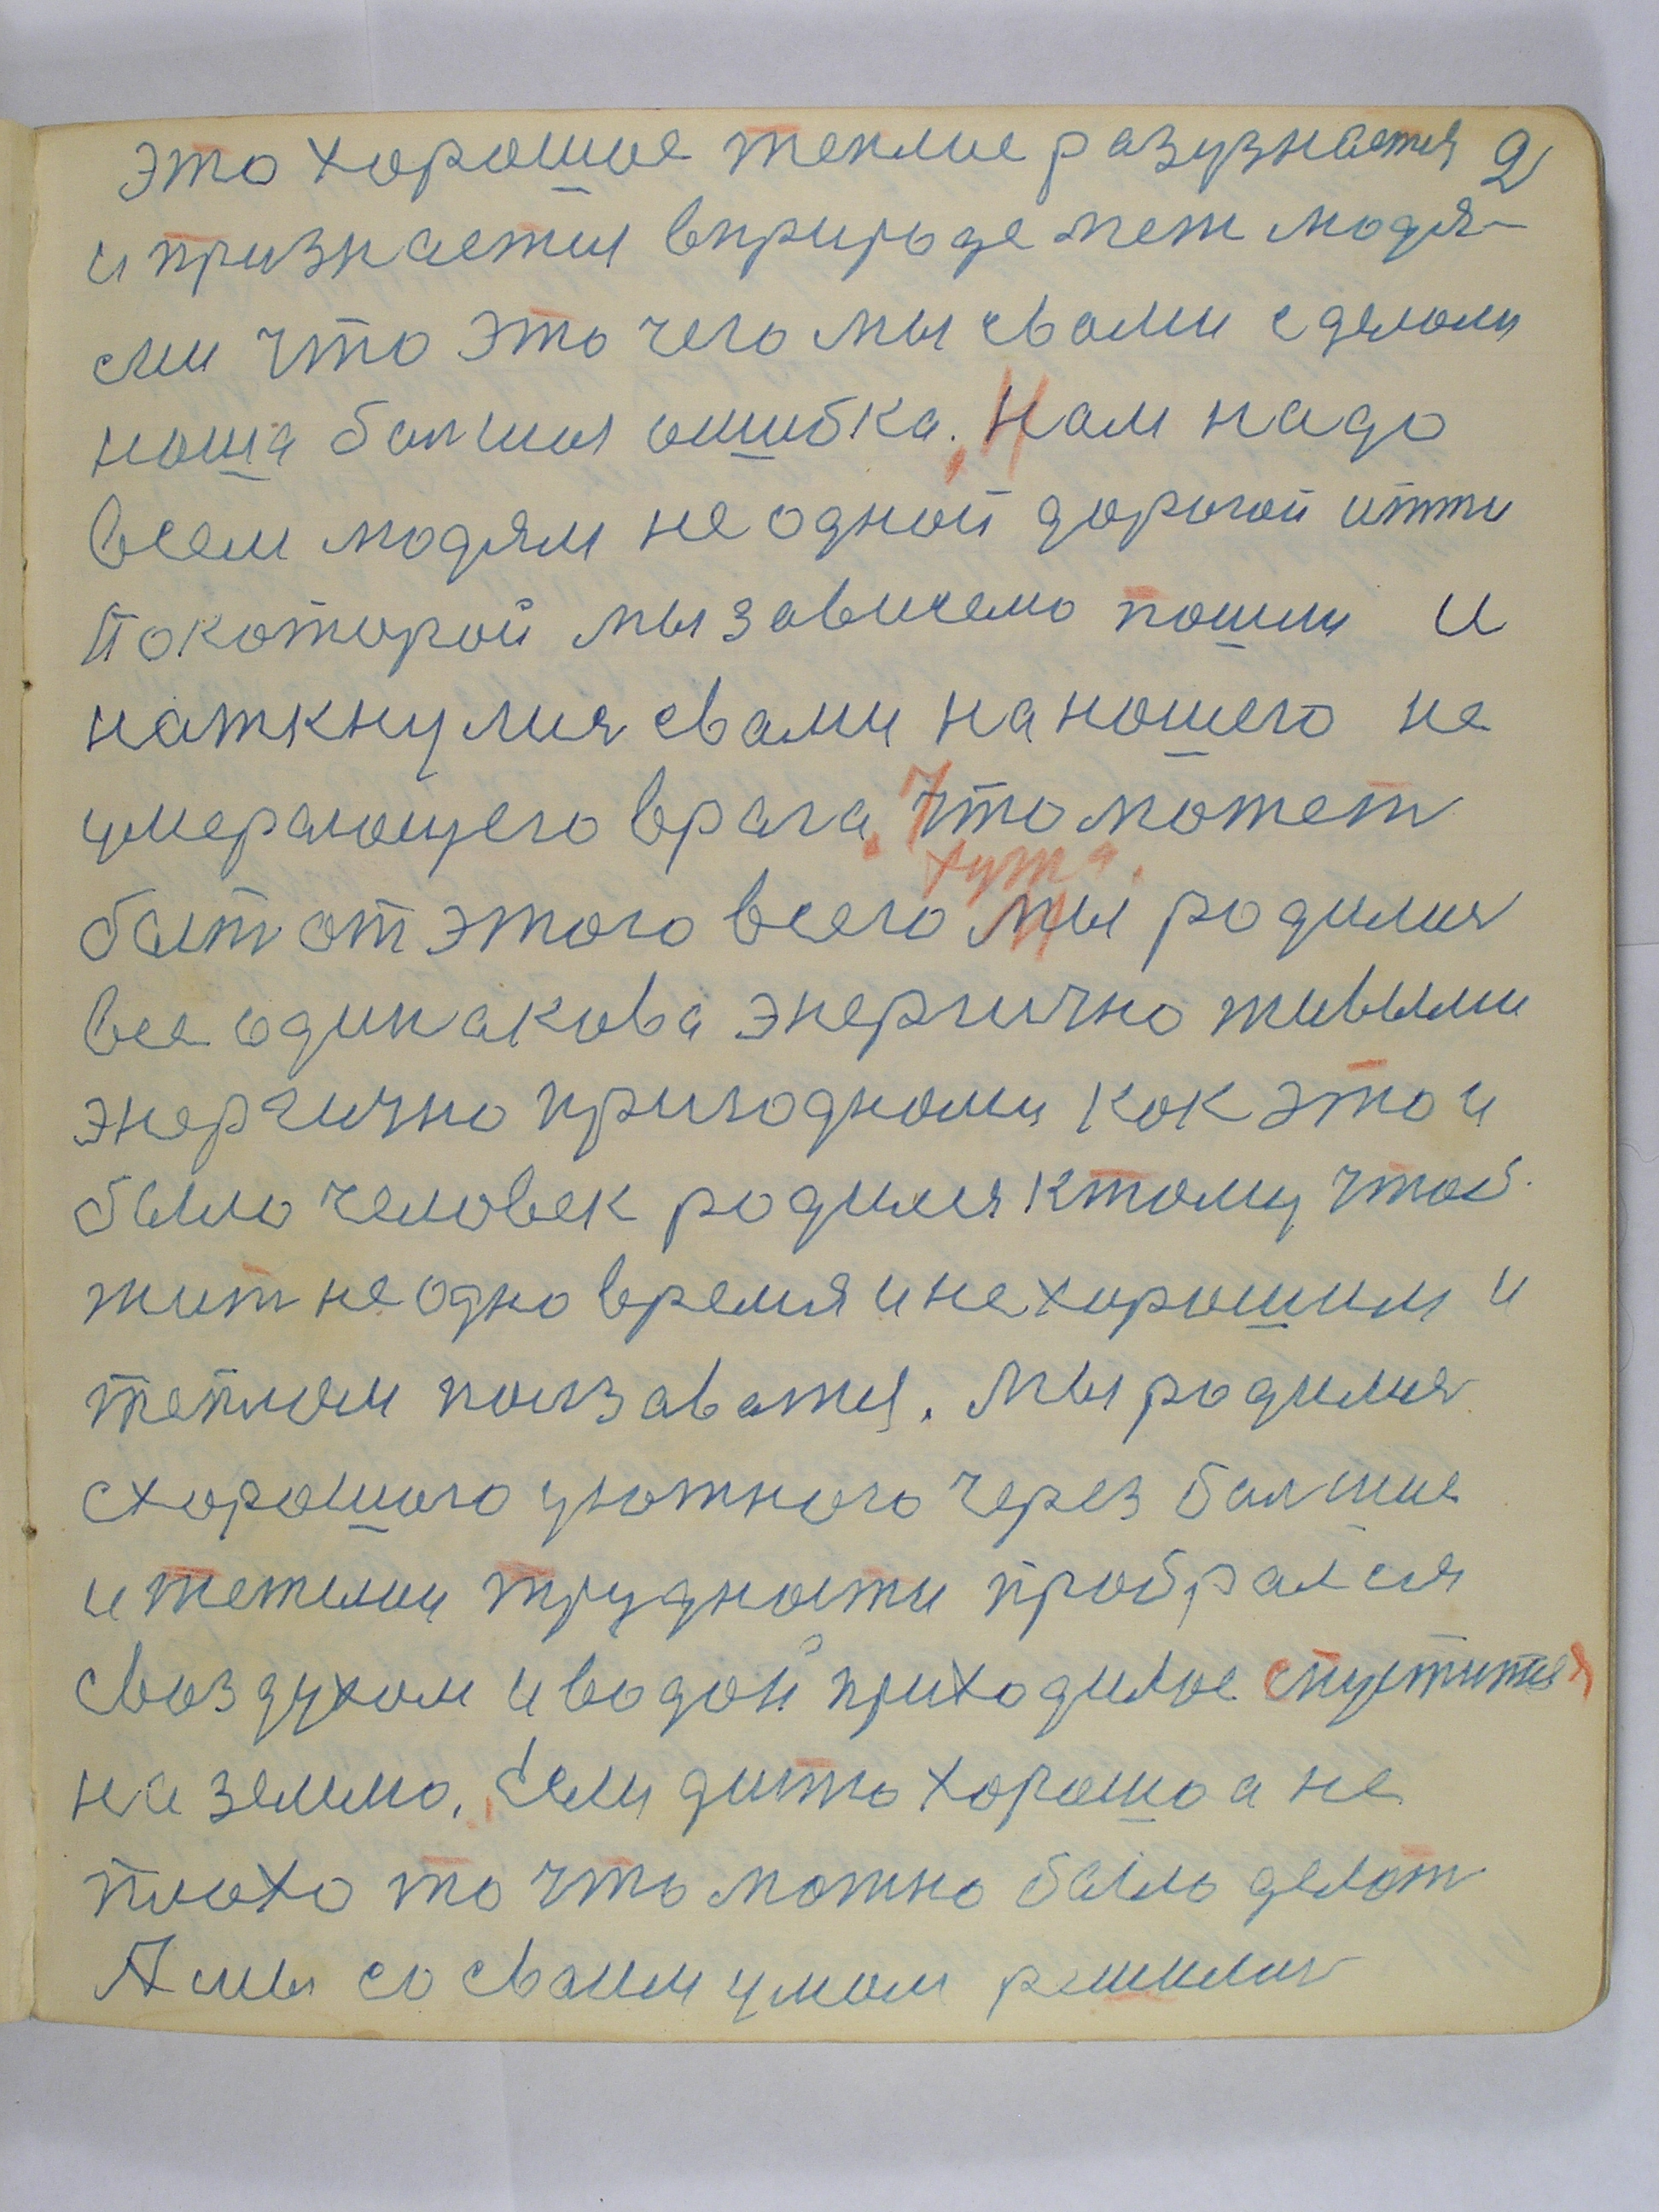 это хорошое теплое разузнается 2
и признается вприроде меж людя-
ми что это чего мы свами сделали
наша балшая ошибка. Нам надо
всем людям не одной дорогой итти
по которой мы зависемо пошли и
наткнулися свами на нашего не
умерающего врага, Что может
быт от этого всего хужа. мы родилися
все одинакова энергично живыми
энергично природными как это и
было человек родился ктому чтоб
жит не одно время и не хорошим и
теплом ползаватся. Мы родилися
схорошого уютного через балшие
и тежелои трудности пробрался
своздухом и водой приходилос спустится
на землю. Если дитю хорошо а не
плохо то что можно было делат
А мы со своим умом решилис